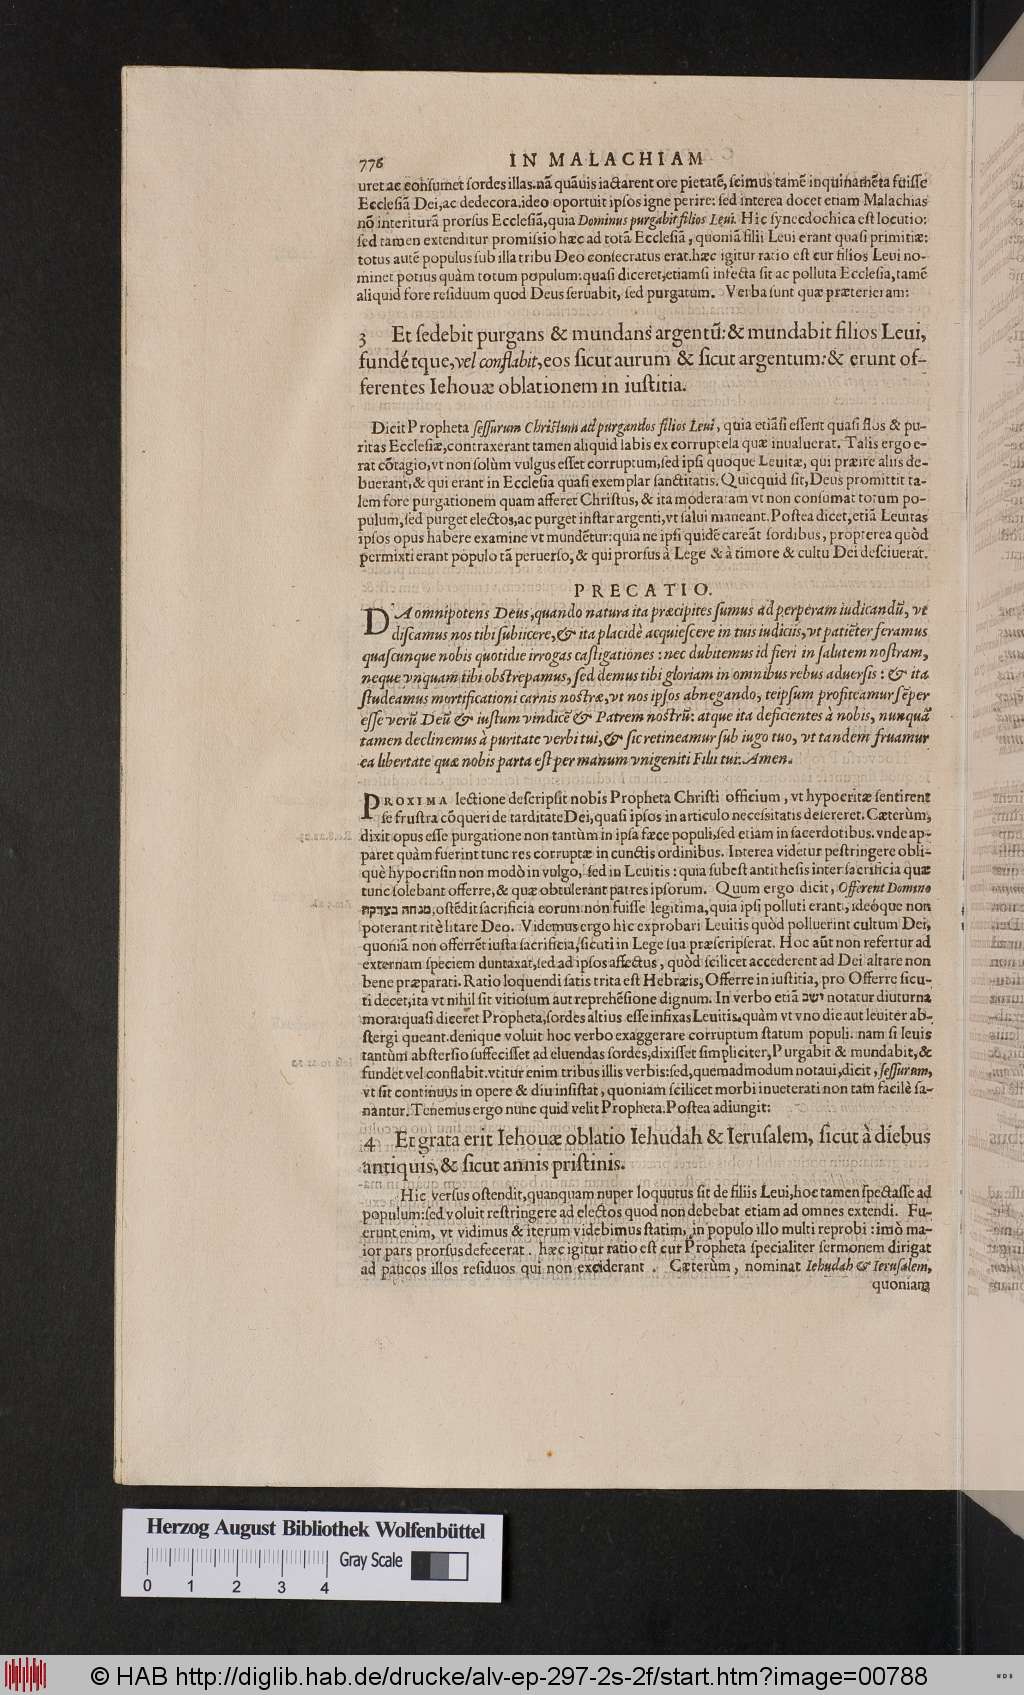 776 IN MALACHIAM
uret ac consumet sordes illas. nã quãuis iactarent ore pietatẽ, scimus tamẽ inquinamẽta fuisse
Ecclesiã Dei, ac dedecora. ideo oportuit ipsos igne perire: sed interea docet etiam Malachias
nõ interiturã prorsus Ecclesiã, quia Dominus purgabit filios Leui. Hic synecdochica est locutio:
sed tamen extenditur promissio hæc ad totã Ecclesiã, quoniã filii Leui erant quasi primitiæ:
totus autẽ populus sub illa tribu Deo consecratus erat. hæc igitur ratio est cur filios Leui no-
minet potius quàm totum populum: quasi diceret, etiamsi infecta sit ac polluta Ecclesia, tamẽ
aliquid fore residuum quod Deus seruabit, sed purgatum. Verba sunt quæ præteriei am:
3 Et sedebit purgans & mundans argentũ: & mundabit filios Leui,
fundétque, vel conflabit, eos sicut aurum & sicut argentum: & erunt of-
ferentes Iehouæ oblationem in iustitia.
Dicit Propheta sessurum Christum ad purgandos filios Leui, quia etiãsi essent quasi flos & pu-
ritas Ecclesiæ, contraxerant tamen aliquid labis ex corruptela quæ inualuerat. Talis ergo e-
rat cõtagio, vt non solùm vulgus esset corruptum, sed ipsi quoque Leuitæ, qui præire aliis de-
buerant, & qui erant in Ecclesia quasi exemplar sanctitatis. Quicquid sit, Deus promittit ta-
lem fore purgationem quam afferet Christus, & ita moderatam vt non consumat totum po-
pulum, sed purget electos, ac purget instar argenti, vt salui maneant. Postea dicet, etiã Leuitas
ipsos opus habere examine vt mundẽtur: quia ne ipsi quidẽ careãt sordibus, propterea quòd
permixti erant populo tã peruerso, & qui prorsus à Lege & à timore & cultu Dei desciuerat.
PRECATIO.
DA omnipotens Deus, quando natura ita præcipites sumus ad perperam iudicandũ, vt
discamus nos tibi subiicere, & ita placidè acquiescere in tuis iudiciis, vt patiẽter feramus
quascunque nobis quotidie irrogas castigationes: nec dubitemus id fieri in salutem nostram,
neque vnquam tibi obstrepamus, sed demus tibi gloriam in omnibus rebus aduersis: & ita
studeamus mortificationi carnis nostræ, vt nos ipsos abnegando, teipsum profiteamur sẽper
esse verũ Deũ & iustum vindicẽ & Patrem nostrũ: atque ita deficientes à nobis, nunquã
tamen declinemus à puritate verbi tui, & sic retineamur sub iugo tuo, vt tandem fruamur
ea libertate quæ nobis parta est per manum vnigeniti Filii tui. Amen.
PROXIMA lectione descripsit nobis Propheta Christi officium, vt hypocritæ sentirent
se frustra cõqueri de tarditate Dei, quasi ipsos in articulo necessitatis desereret. Cæterùm,
dixit opus esse purgatione non tantùm in ipsa fæce populi, sed etiam in sacerdotibus. vnde ap-
paret quàm fuerint tunc res corruptæ in cunctis ordinibus. Interea videtur pestringere obli-
què hypocrisin non modò in vulgo, sed in Leuitis: quia subest antithesis inter sacrificia quæ
tunc solebant offerre, & quæ obtulerant patres ipsorum. Quum ergo dicit, Offerent Domino
מנחה בצדקה, ostẽdit sacrificia eorum non fuisse legitima, quia ipsi polluti erant, ideóque non
poterant ritè litare Deo. Videmus ergo hic exprobari Leuitis quòd polluerint cultum Dei,
quoniã non offerrẽt iusta sacrificia, sicuti in Lege sua præscripserat. Hoc aũt non refertur ad
externam speciem duntaxat, sed ad ipsos affectus, quòd scilicet accederent ad Dei altare non
bene præparati. Ratio loquendi satis trita est Hebræis, Offerre in iustitia, pro Offerre sicu-
ti decet, ita vt nihil sit vitiosum aut reprehẽsione dignum. In verbo etiã ישב notatur diuturna
mora: quasi diceret Propheta, sordes altius esse infixas Leuitis, quàm vt vno die aut leuiter ab-
stergi queant. denique voluit hoc verbo exaggerare corruptum statum populi. nam si leuis
tantùm abstersio suffecisset ad eluendas sordes, dixisset simpliciter, Purgabit & mundabit, &
fundet vel conflabit. vtitur enim tribus illis verbis: sed, quemadmodum notaui, dicit, sessurum,
vt sit continuus in opere & diu insistat, quoniam scilicet morbi inueterati non tam facilè sa-
nantur. Tenemus ergo nunc quid velit Propheta. Postea adiungit:
4 Et grata erit Iehouæ oblatio Iehudah & Ierusalem, sicut à diebus
antiquis, & sicut annis pristinis.
Hic versus ostendit, quanquam nuper loquutus sit de filiis Leui, hoc tamen spectasse ad
populum: sed voluit restringere ad electos quod non debebat etiam ad omnes extendi. Fu-
erunt enim, vt vidimus & iterum videbimus statim, in populo illo multi reprobi: imò ma-
ior pars prorsus defecerat. hæc igitur ratio est cur Propheta specialiter sermonem dirigat
ad paucos illos residuos qui non exciderant. Cæterùm, nominat Iehudah & Ierusalem,
quoniam
Herzog August Bibliothek Wolfenbüttel
Gray Scale
0 1 2 3 4
© HAB http://diglib.hab.de/drucke/alv-ep-297-2s-2f/start.htm?image=00788